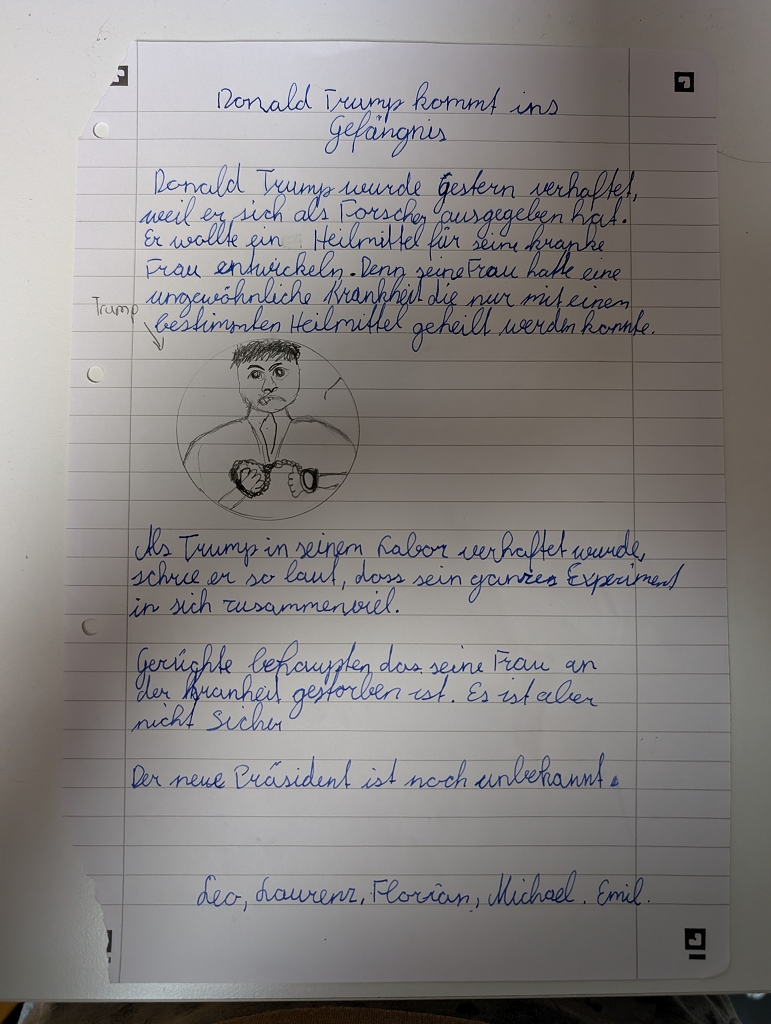 Donald Trump kommt ins
Gefängnis
Donald Trump wurde gestern verhaftet,
weil er sich als Forscher ausgegeben hat.
Er wollte ein Heilmittel für seine kranke
Frau entwickeln. Denn seine Frau hatte eine
ungewöhnliche Krankheit die nur mit einen
bestimmten Heilmittel geheilt werden konnte.
Trump
Als Trump in seinem Labor verhaftet wurde,
schrie er so laut, dass sein ganzes Experiment
in sich zusammenviel.
Gerüchte behaupten das seine Frau an
der Kranheit gestorben ist. Es ist aber
nicht Sicher
Der neue Präsident ist noch unbekannt.
Leo, Laurenz, Florian, Michael. Emil.